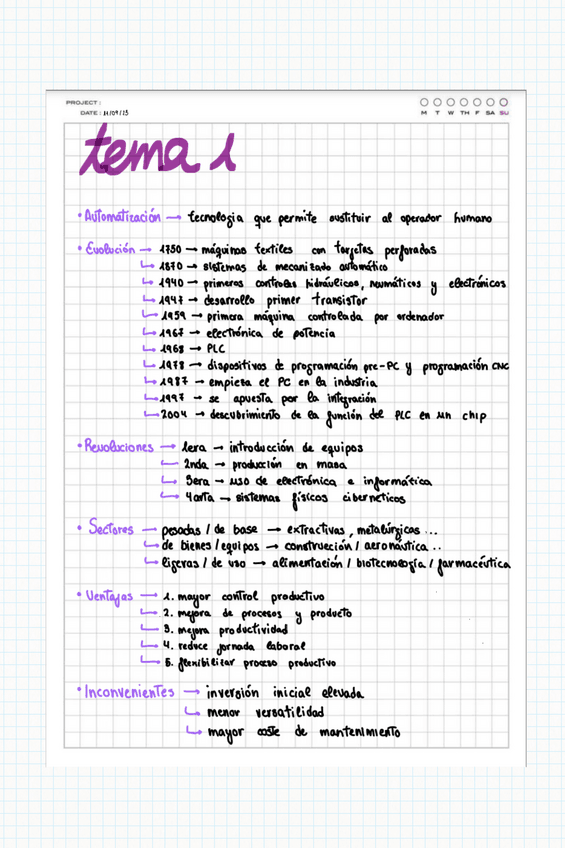 PROJECT :
DATE : 11/09/23
M T W TH F SA SU
tema 1
• Automatización → tecnologia que permite sustituir al operador humano
• Evolución → 1750 → máquinas textiles con tarjetas perforadas
↳ 1870 → sistemas de mecanizado automático
↳ 1940 → primeros controles hidráulicos, neumáticos y electrónicos
↳ 1947 → desarrollo primer transistor
↳ 1959 → primera máquina controlada por ordenador
↳ 1967 → electrónica de potencia
↳ 1968 → PLC
↳ 1978 → dispositivos de programación pre-PC y programación CNC
↳ 1987 → empieza el PC en la industria
↳ 1997 → se apuesta por la integración
↳ 2004 → descubrimiento de la función del PLC en un chip
• Revoluciones → 1era → introducción de equipos
↳ 2nda → producción en masa
↳ 3era → uso de electrónica e informática
↳ 4arta → sistemas físicos ciberneticos
• Sectores → pesadas / de base → extractivas, metalúrgicas ...
↳ de bienes / equipos → construcción / aeronáutica ..
↳ ligeras / de uso → alimentación / biotecnología / farmacéutica
• Ventajas → 1. mayor control productivo
↳ 2. mejora de procesos y producto
↳ 3. mejora productividad
↳ 4. reduce jornada laboral
↳ 5. flexibilizar proceso productivo
• Inconvenientes → inversión inicial elevada
↳ menor versatilidad
↳ mayor coste de mantenimiento